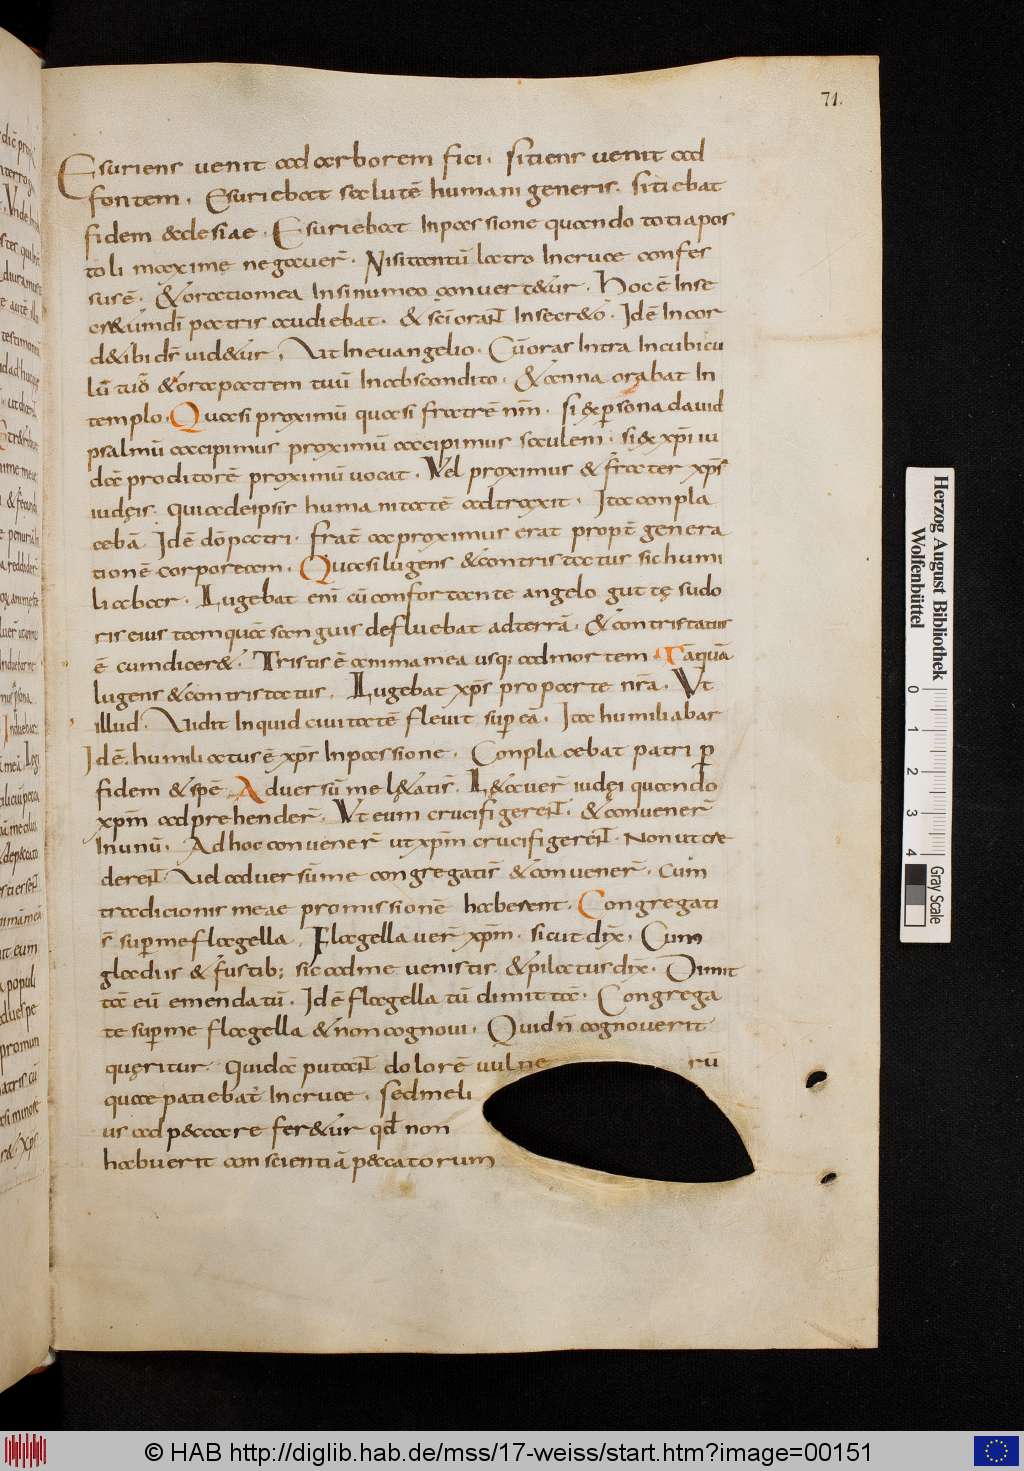 71.
Esuriens uenit ad arborem fici. sitiens uenit ad
fontem. Esuriebat salutē humani generis. sitiebat
fidem ęcclesiae. Esuriebat Inpassione quando totiapos
toli maxime negauer̄. Nisitantū latro Incruce confes
susē. &oratiomea Insinumeo conuert&ur. Hoc ē Inse
cr&umdi patris audiebat. & sci orant Insecr&o. Idē Incor
d&ibi dr uid&ur, Ut Ineuangelio. Cū oras Intra Incubicu
lū tuō &ora patrem tuū Inabscondito. &anna orabat In
templo. Quasi proximū quasi fratrē nrm. si exp̱sona dauid
psalmū accipimus proximū accipimus saulem. si ex xp̄i iu
dā proditorē proximū uocat. Vel proximus & frater xp̄s
iudęis. quiadeipsis humanitatē adtraxit. Ita conpla
cebā Idē dō patri. frat̄ acproximus erat propt̄ genera
tionē corpoream. Quasi lugens &contristatus sic humi
liabar. Lugebat enī cū confortante angelo guttę sudo
ris eius tamquā sanguis defluebat adterrā. & contristatus
ē cum dicer&. Tristis ē anima mea usq; ad mortem. Taquā
lugens &contristatus. Lugebat xp̄s pro parte nrā. Vt
illud. Uidit Inquid ciuitatē fleuit sup̱ eā. Ita humiliabar
Idē. humiliatus ē xp̄s Inpassione. Conplacebat patri p̱
fidem & spē. Aduersū me l&atis. L&auer̄ iudęi quando
xp̄m adprehender̄. Vt eum crucifigerent. & conuener̄
Inunū. Ad hoc conuener̄ ut xp̄m crucifigerent. Non ut cre
derent. Uel aduersū me congregatis & conuener̄. Cum
tradicionis meae promissionē haberent. Congregati
s̄ sup̱ me flagella. Flagella uer̄ xp̄m. sicut dix̄. Cum
gladiis & fustib; sic ad me uenistis. & pilatus dix̄. Dimit
tā eū emendatū. Id ē flagella tū dimittā. Congrega
te sup̱ me flagella & non cognoui. Quid n̄ cognouerit
quęritur. Quidā putant dolorē uulne rū
quae patiebat̄ Incruce. sed meli
us ad p&care fer&ur qd̄ non
habuerit conscientiā peccatorum
Herzog August Bibliothek
Wolfenbüttel
0 1 2 3 4
Gray Scale
© HAB http://diglib.hab.de/mss/17-weiss/start.htm?image=00151